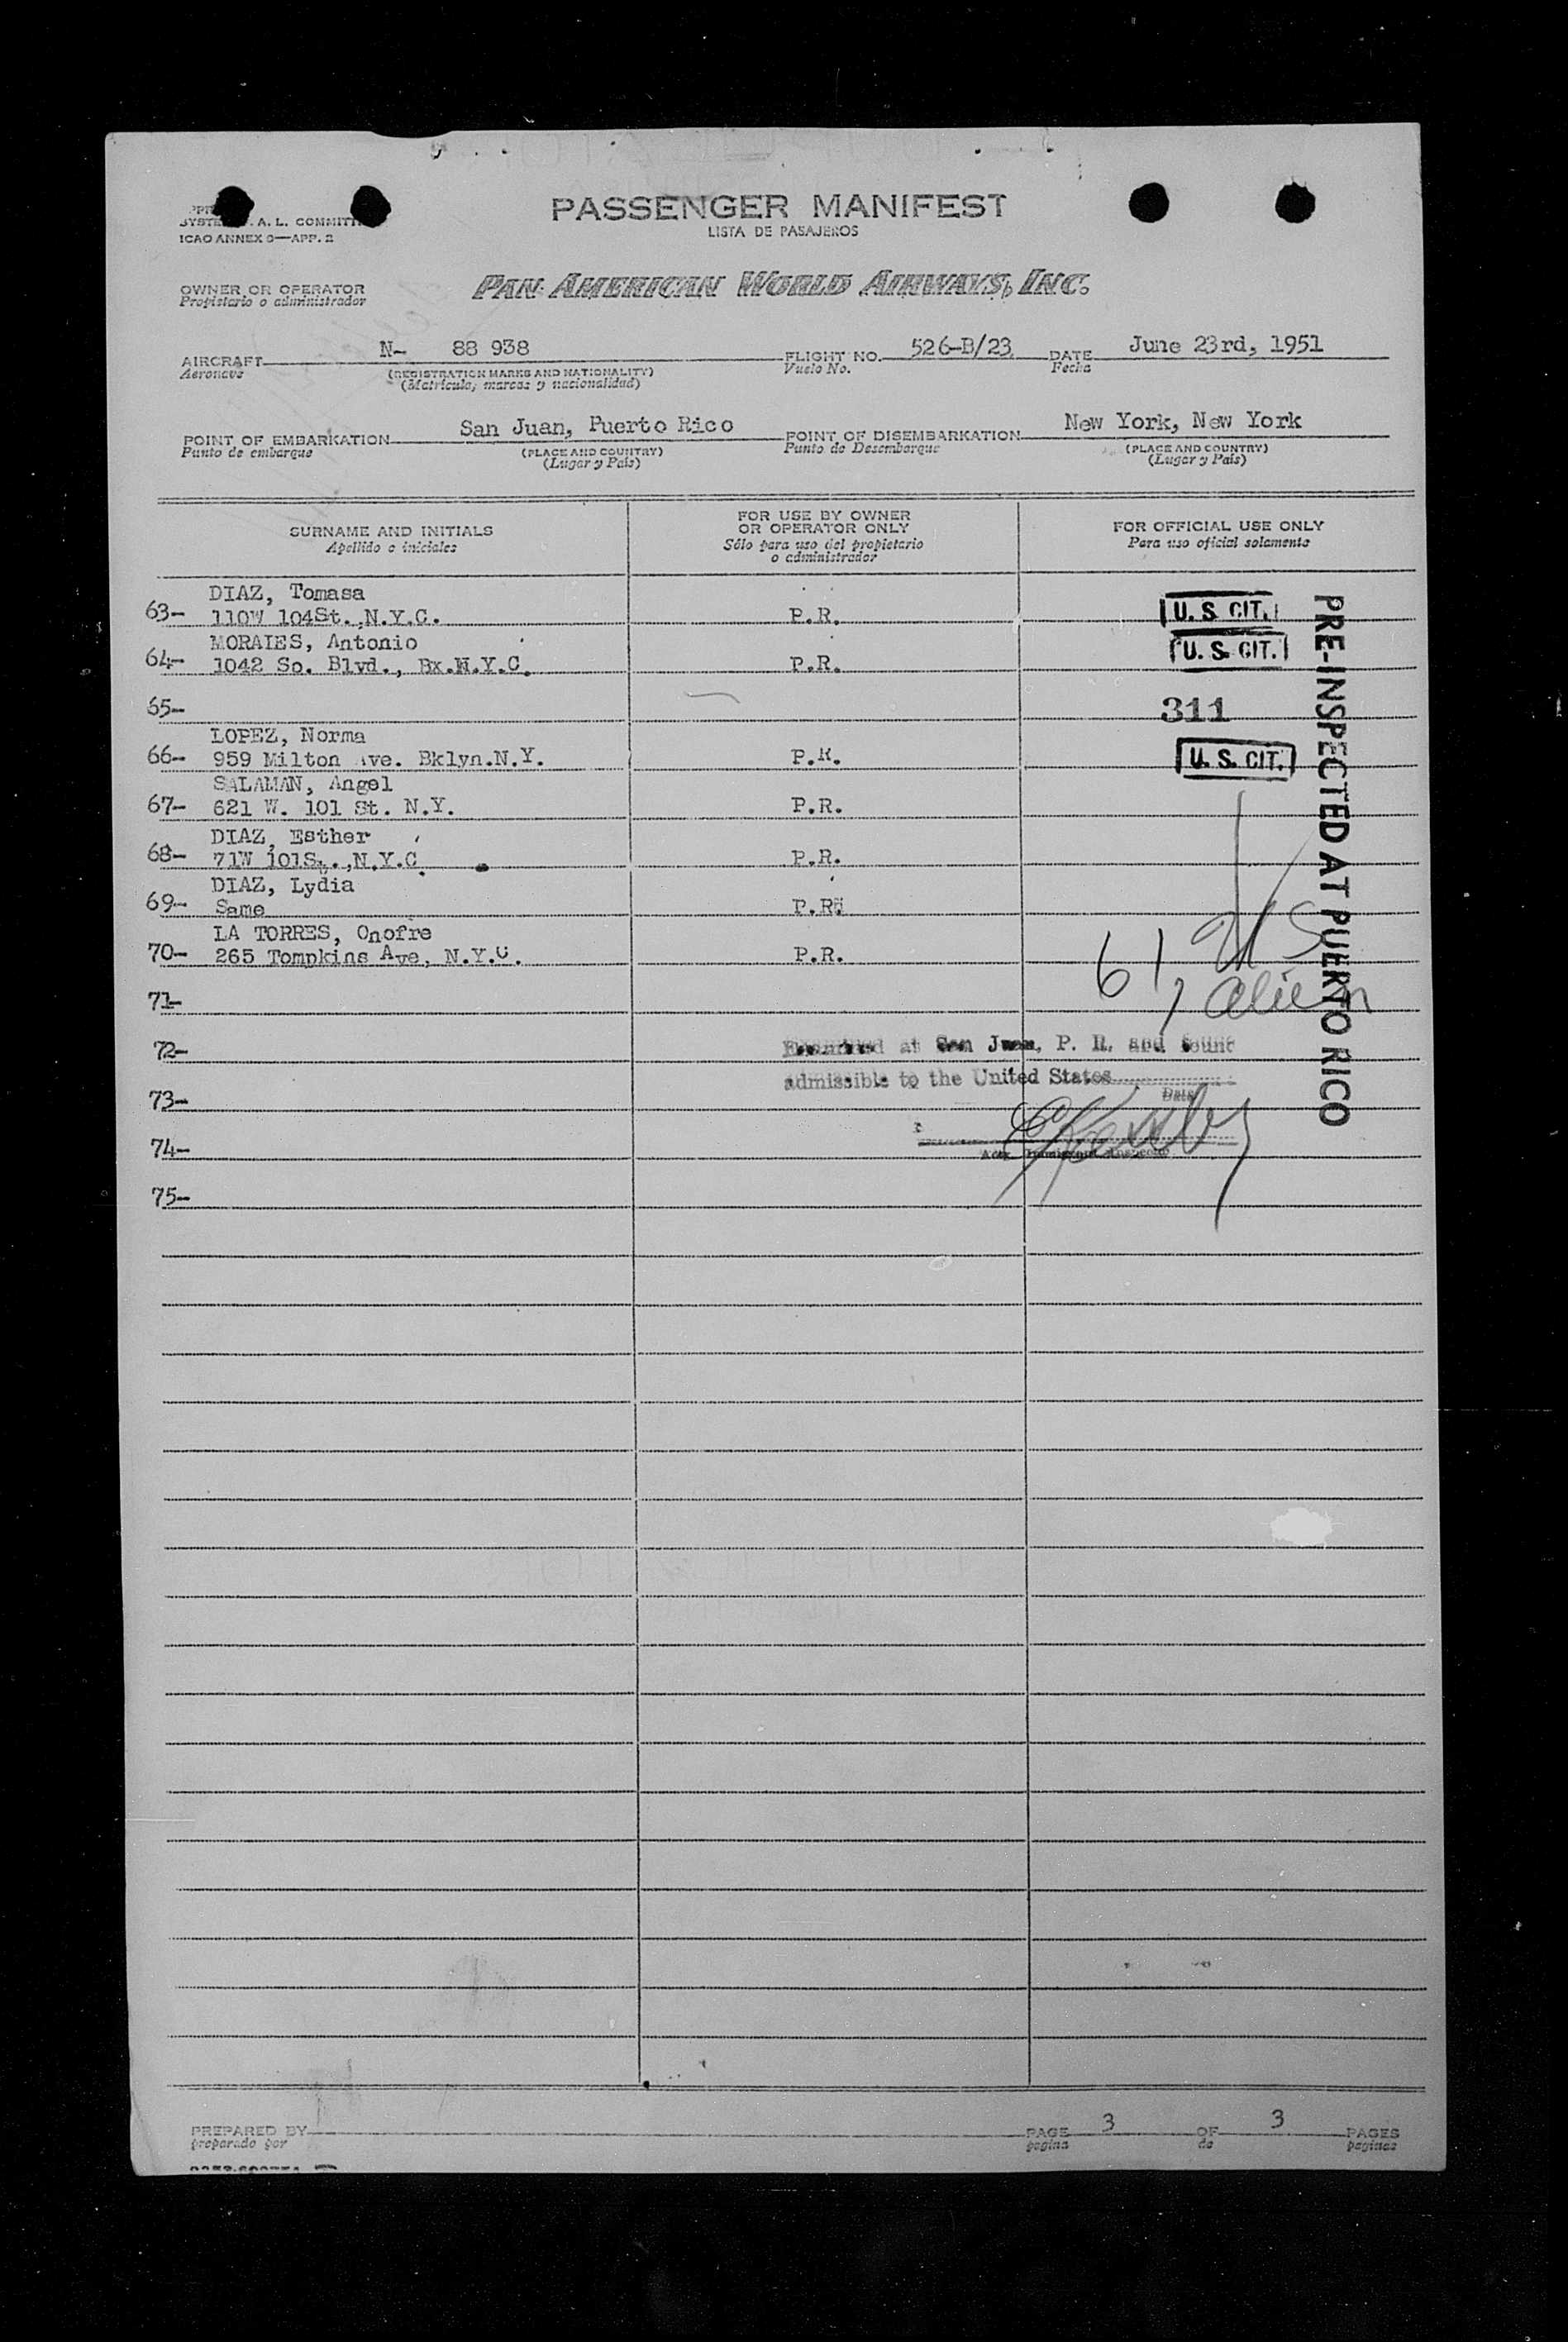 PASSENGER MANIFEST
LISTA DE PASAJEROS
A. L. COMMITT
ICAO ANNEX 9—APP. 2
OWNER OR OPERATOR
Propietario o administrador
PAN AMERICAN WORLD AIRWAYS, INC.
AIRCRAFT N- 88 938 FLIGHT NO. 526-B/23 DATE June 23rd, 1951
Aeronave (REGISTRATION MARKS AND NATIONALITY) Vuelo No. Fecha
(Matricula, marcas y nacionalidad)
POINT OF EMBARKATION San Juan, Puerto Rico POINT OF DISEMBARKATION New York, New York
Punto de embarque (PLACE AND COUNTRY) Punto de Desembarque (PLACE AND COUNTRY)
(Lugar y País) (Lugar y País)
SURNAME AND INITIALS FOR USE BY OWNER OR OPERATOR ONLY FOR OFFICIAL USE ONLY
Apellido e iniciales Sólo para uso del propietario o administrador Para uso oficial solamente
DIAZ, Tomasa
63- 110W 104St.,N.Y.C. P.R. U. S. CIT.
MORALES, Antonio
64- 1042 So. Blvd., Bx.N.Y.C. P.R. U. S. CIT.
65- 311
LOPEZ, Norma
66- 959 Milton Ave. Bklyn.N.Y. P.R. U. S. CIT.
SALAMAN, Angel
67- 621 W. 101 St. N.Y. P.R.
DIAZ, Esther
68- 71W 101St.,N.Y.C. P.R.
DIAZ, Lydia
69- Same P.R.
LA TORRES, Onofre
70- 265 Tompkins Ave, N.Y.C. P.R.
61, US
71- 1, alien
72- Examined at San Juan, P. R. and found
admissible to the United States
Date
73-
74-
Immigrant Inspector
75-
PRE-INSPECTED AT PUERTO RICO
PREPARED BY PAGE 3 OF 3 PAGES
preparado por pagina de paginas